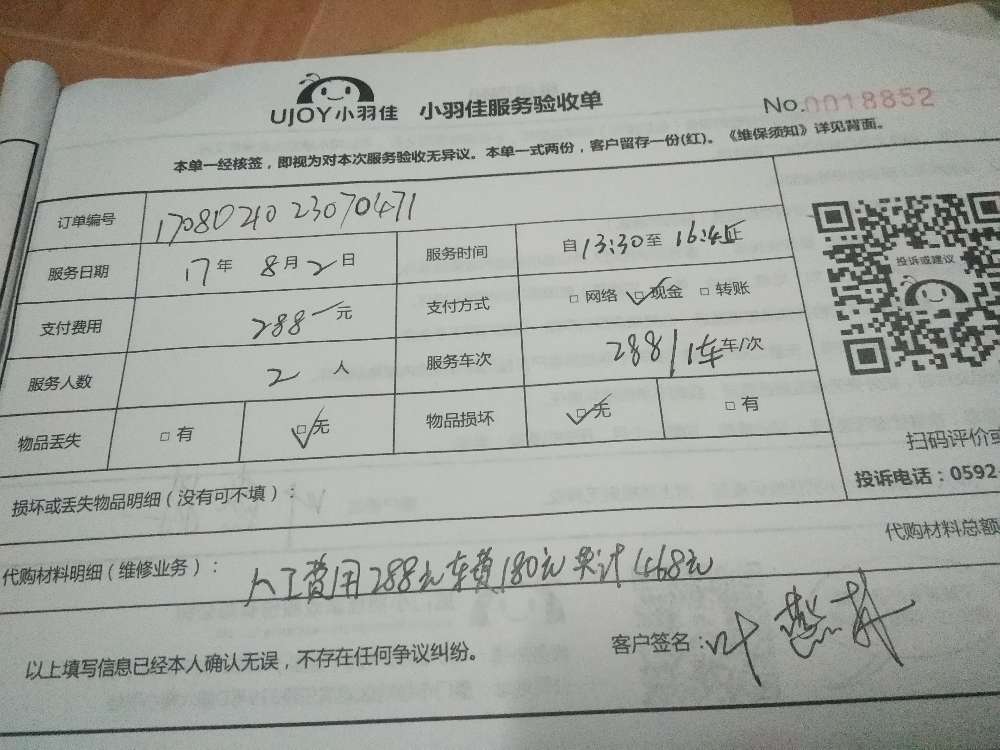 UJOY小羽佳 小羽佳服务验收单 No.0018852
本单一经核签，即视为对本次服务验收无异议。本单一式两份，客户留存一份(红)。《维保须知》详见背面。
订单编号 1708021023070471
服务日期 17年8月2日 服务时间 自13:30至16:45止
支付费用 288元 支付方式 □网络 ☑现金 □转账
服务人数 2人 服务车次 288/1车车/次
物品丢失 □有 ☑无 物品损坏 ☑无 □有
投诉或建议
扫码评价或
投诉电话：0592-
损坏或丢失物品明细（没有可不填）：
代购材料总额
代购材料明细（维修业务）： 人工费用288元车费180元共计468元
以上填写信息已经本人确认无误，不存在任何争议纠纷。 客户签名：叶